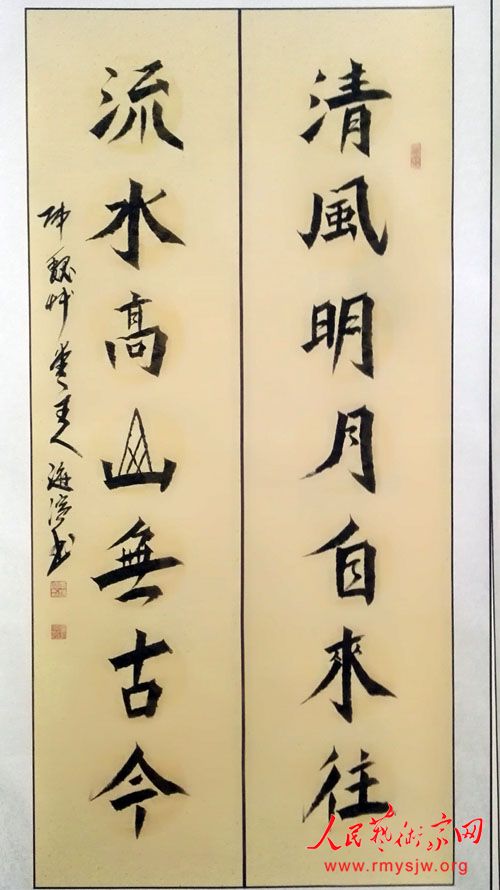 清風明月自來往
流水高山無古今
海濤书
人民藝術家网
www.rmysjw.org